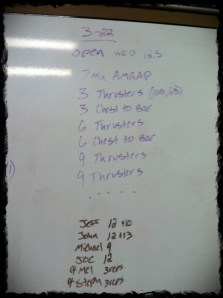 3-22
open WOD 12.5
7 Min AMRAP
3 Thrusters (100/65)
3 Chest to Bar
6 Thrusters
6 Chest to Bar
9 Thrusters
9 Thrusters
.....
Jeff 12+10
John 12+13
Michael 9
JOE 12
Mel 3 rds
Steph 3 rds